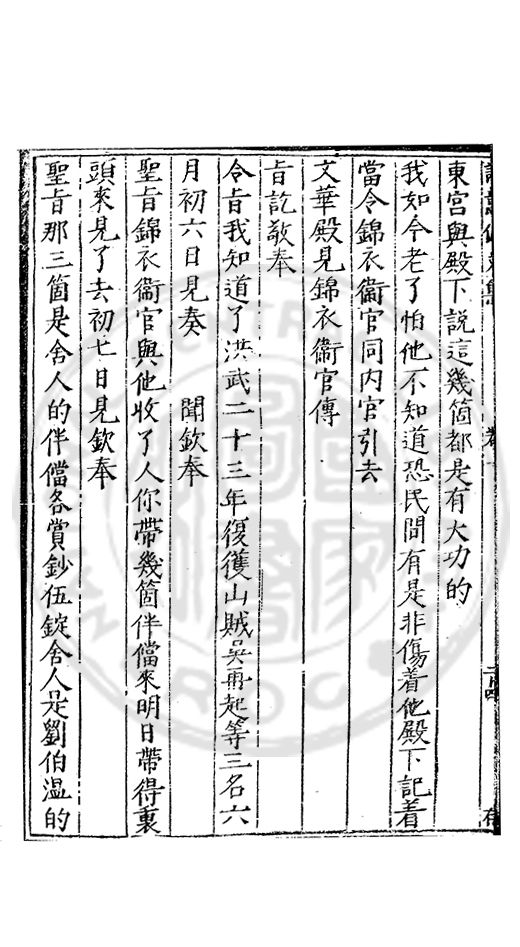 東宮與殿下說這幾箇都是有大功的
我如今老了怕他不知道恐民間有是非傷着他殿下記着
當令錦衣衞官同內官引去
文華殿見錦衣衞官傳
旨訖敬奉
令旨我知道了洪武二十三年復獲山賊吳再起等三名六
月初六日見奏 聞欽奉
聖旨錦衣衞官與他收了人你帶幾箇伴儅來明日帶得裏
頭來見了去初七日見欽奉
聖旨那三箇是舍人的伴儅各賞鈔伍錠舍人是劉伯溫的